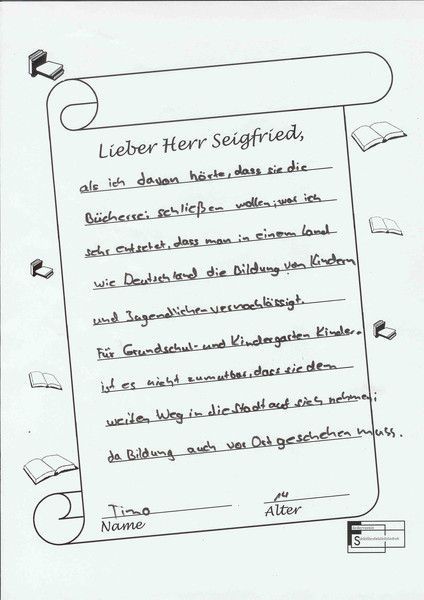 Lieber Herr Seigfried,
als ich davon hörte, dass sie die
Bücherrei schließen wollen; war ich
sehr entsetet, dass man in einem Land
wie Deutschland die Bildung von Kindern
und Jugendlichen vernachlässigt.
Für Grundschul- und Kindergarten Kinder
ist es nicht zumutbar, dass sie dem
weiten Weg in die Stadt auf sich nehmen;
da Bildung auch vor Ort geschehen muss.
Timo 14
Name Alter